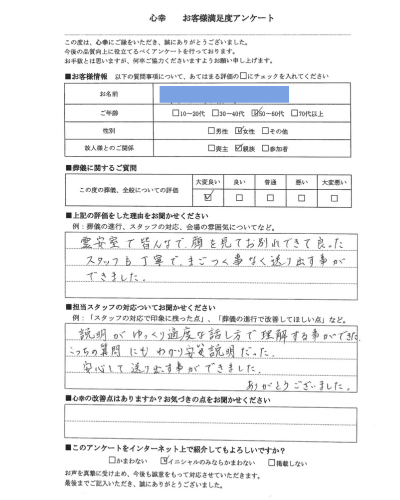 心幸　お客様満足度アンケート
この度は、心幸にご縁をいただき、誠にありがとうございました。
今後の品質向上に役立てるべくアンケートを行っております。
お手数とは思いますが、何卒ご協力くださいますようお願い申し上げます。
■お客様情報　以下の質問事項について、あてはまる評価の□にチェックを入れてください
お名前
ご年齢　□10～20代　□30～40代　☑50～60代　□70代以上
性別　□男性　☑女性　□その他
故人様とのご関係　□喪主　☑親族　□参加者
■葬儀に関するご質問
大変良い　良い　普通　悪い　大変悪い
この度の葬儀、全般についての評価　☑　□　□　□　□
■上記の評価をした理由をお聞かせください
例：葬儀の進行、スタッフの対応、会場の雰囲気についてなど。
霊安室で皆んなで、顔を見てお別れできて良った
スタッフも丁寧で、まごつく事なく送り出す事が
できました。
■担当スタッフの対応についてお聞かせください
例：「スタッフの対応で印象に残った点」、「葬儀の進行で改善してほしい点」など。
説明がゆっくり適度な話し方で理解する事ができた。
こっちの質問にもわかり安い説明だった。
安心して送り出す事ができました.
ありがとうございました。
■心幸の改善点はありますか？お気づきの点をお聞かせください
■このアンケートをインターネット上で紹介してもよろしいですか？
□かまわない　☑イニシャルのみならかまわない　□掲載しない
お声を真摯に受け止め、今後も誠意をもって対応させていただきます。
最後までご記入いただき、誠にありがとうございました。